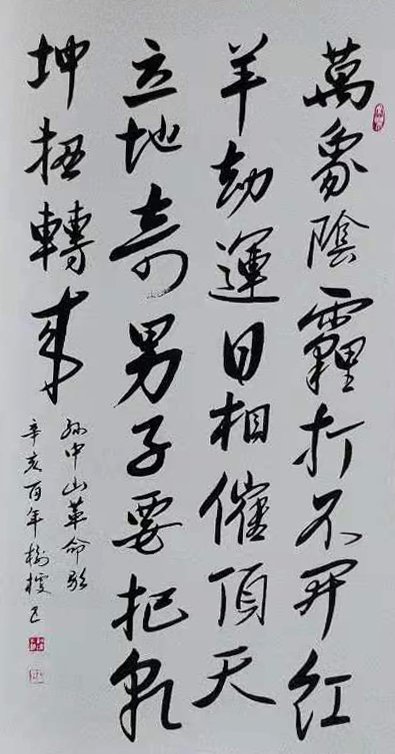 萬象陰霾打不開紅
羊劫運日相催頂天
立地奇男子要把乾
坤扭轉來
孫中山革命歌
辛亥百年